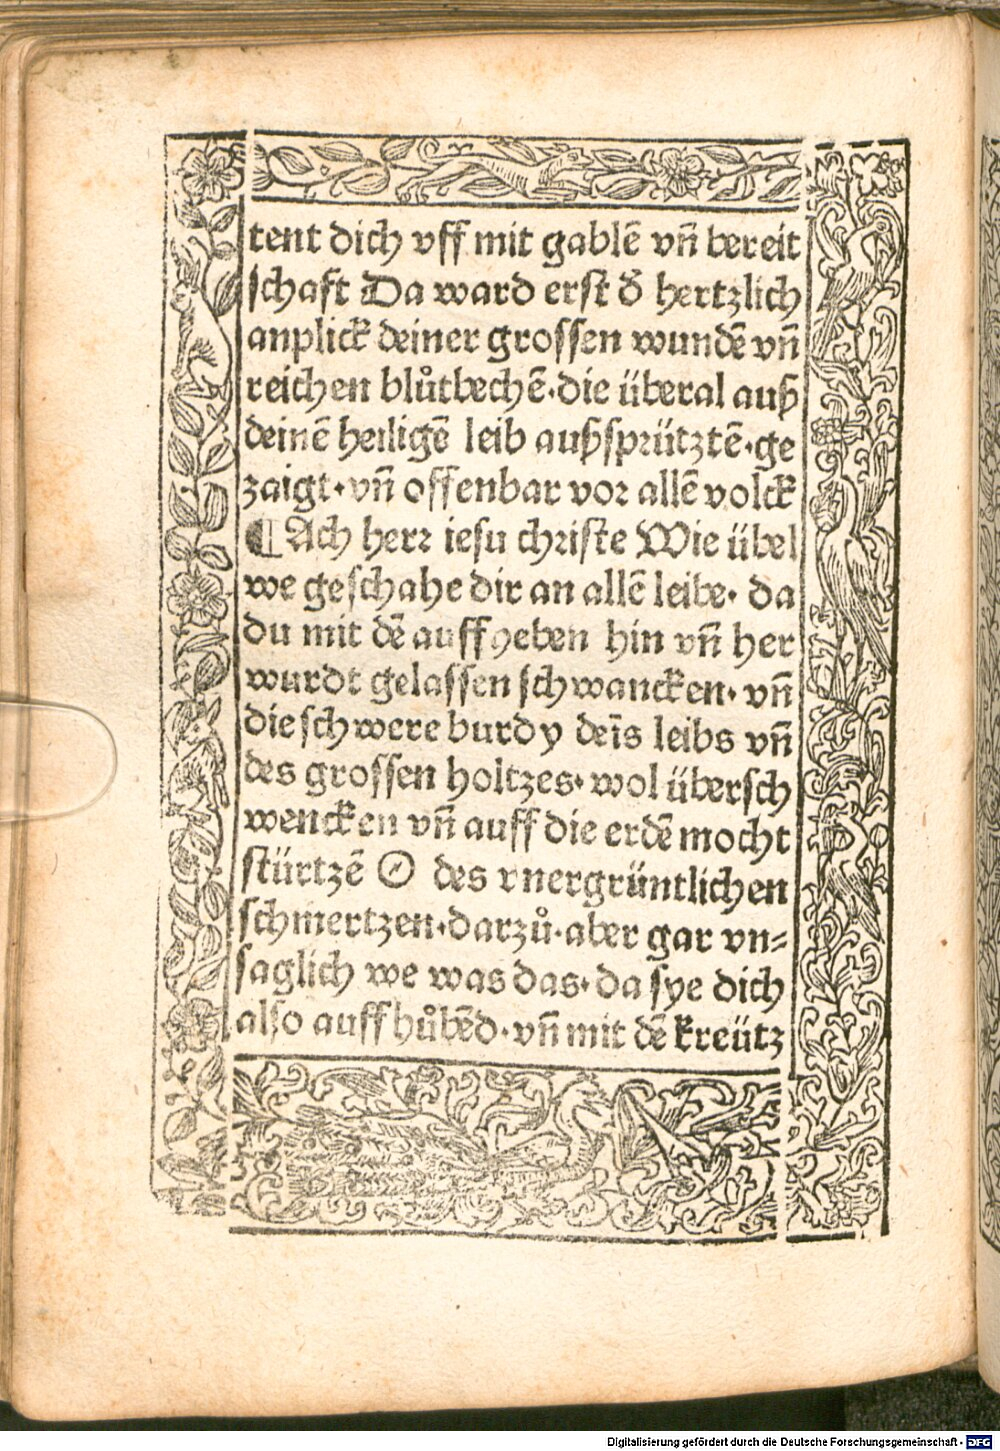 tent dich vff mit gablē vñ bereit
schaft Da ward erst d̄ hertzlich
anplick deiner grossen wundē vñ
reichen blůtbechē·die überal auß
deinē heiligē leib außsprütztē·ge
zaigt·vñ offenbar vor allē volck
¶Ach herr iesu christe Wie übel
we geschahe dir an allē leibe· da
du mit dē auffgeben hin vñ her
wurdt gelassen schwancken· vñ
die schwere burdy deīs leibs vñ
des grossen holtzes·wol übersch
wencken vñ auff die erdē mocht
stürtzē O des vnergrüntlichen
schmertzen·darzů·aber gar vn⸗
saglich we was das·da sye dich
also auff hůbēd·vñ mit dē kreütz
Digitalisierung gefördert durch die Deutsche Forschungsgemeinschaft - DFG